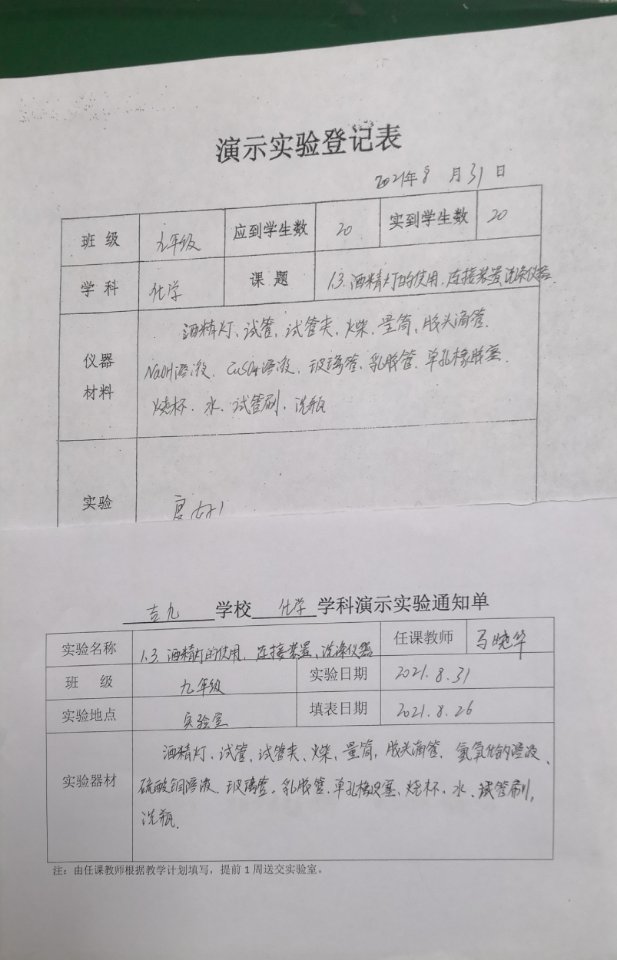 演示实验登记表
2021年8月31日
班级 九年级 应到学生数 20 实到学生数 20
学科 化学 课题 1.3.酒精灯的使用、连接装置、洗涤仪器
酒精灯、试管、试管夹、火柴、量筒、胶头滴管、
仪器
材料
NaOH溶液、CuSO4溶液、玻璃管、乳胶管、单孔橡胶塞、
烧杯、水、试管刷、洗瓶
实验
吉九 学校 化学 学科演示实验通知单
实验名称 1.3.酒精灯的使用、连接装置、洗涤仪器 任课教师 马晓华
班级 九年级 实验日期 2021.8.31
实验地点 实验室 填表日期 2021.8.26
酒精灯、试管、试管夹、火柴、量筒、胶头滴管、氢氧化钠溶液、
实验器材 硫酸铜溶液、玻璃管、乳胶管、单孔橡胶塞、烧杯、水、试管刷、
洗瓶
注：由任课教师根据教学计划填写，提前1周送交实验室。